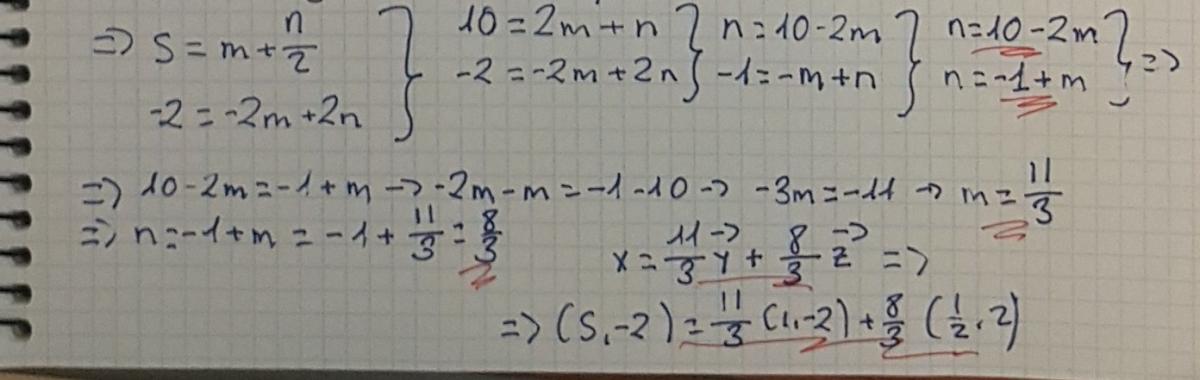 => 5 = m + n/2 } 10 = 2m + n } n = 10 - 2m } n = 10 - 2m } =>
-2 = -2m + 2n } -2 = -2m + 2n } -1 = -m + n } n = -1 + m }
=> 10 - 2m = -1 + m -> -2m - m = -1 - 10 -> -3m = -11 -> m = 11/3
=> n = -1 + m = -1 + 11/3 = 8/3 x = 11/3 y⃗ + 8/3 z⃗ =>
=> (5, -2) = 11/3 (1, -2) + 8/3 (1/2, 2)